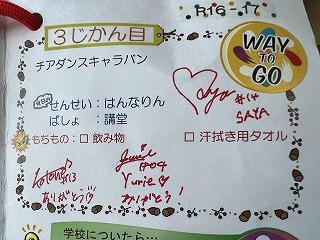 R16-17
3じかん目
WAY
TO
GO
チアダンスキャラバン
せんせい：はんなりん
ばしょ　：講堂
#14
SAYA
もちもの：□ 飲み物　□ 汗拭き用タオル
#04
Yurie
ありがとう!
ありがとう
学校についたら…